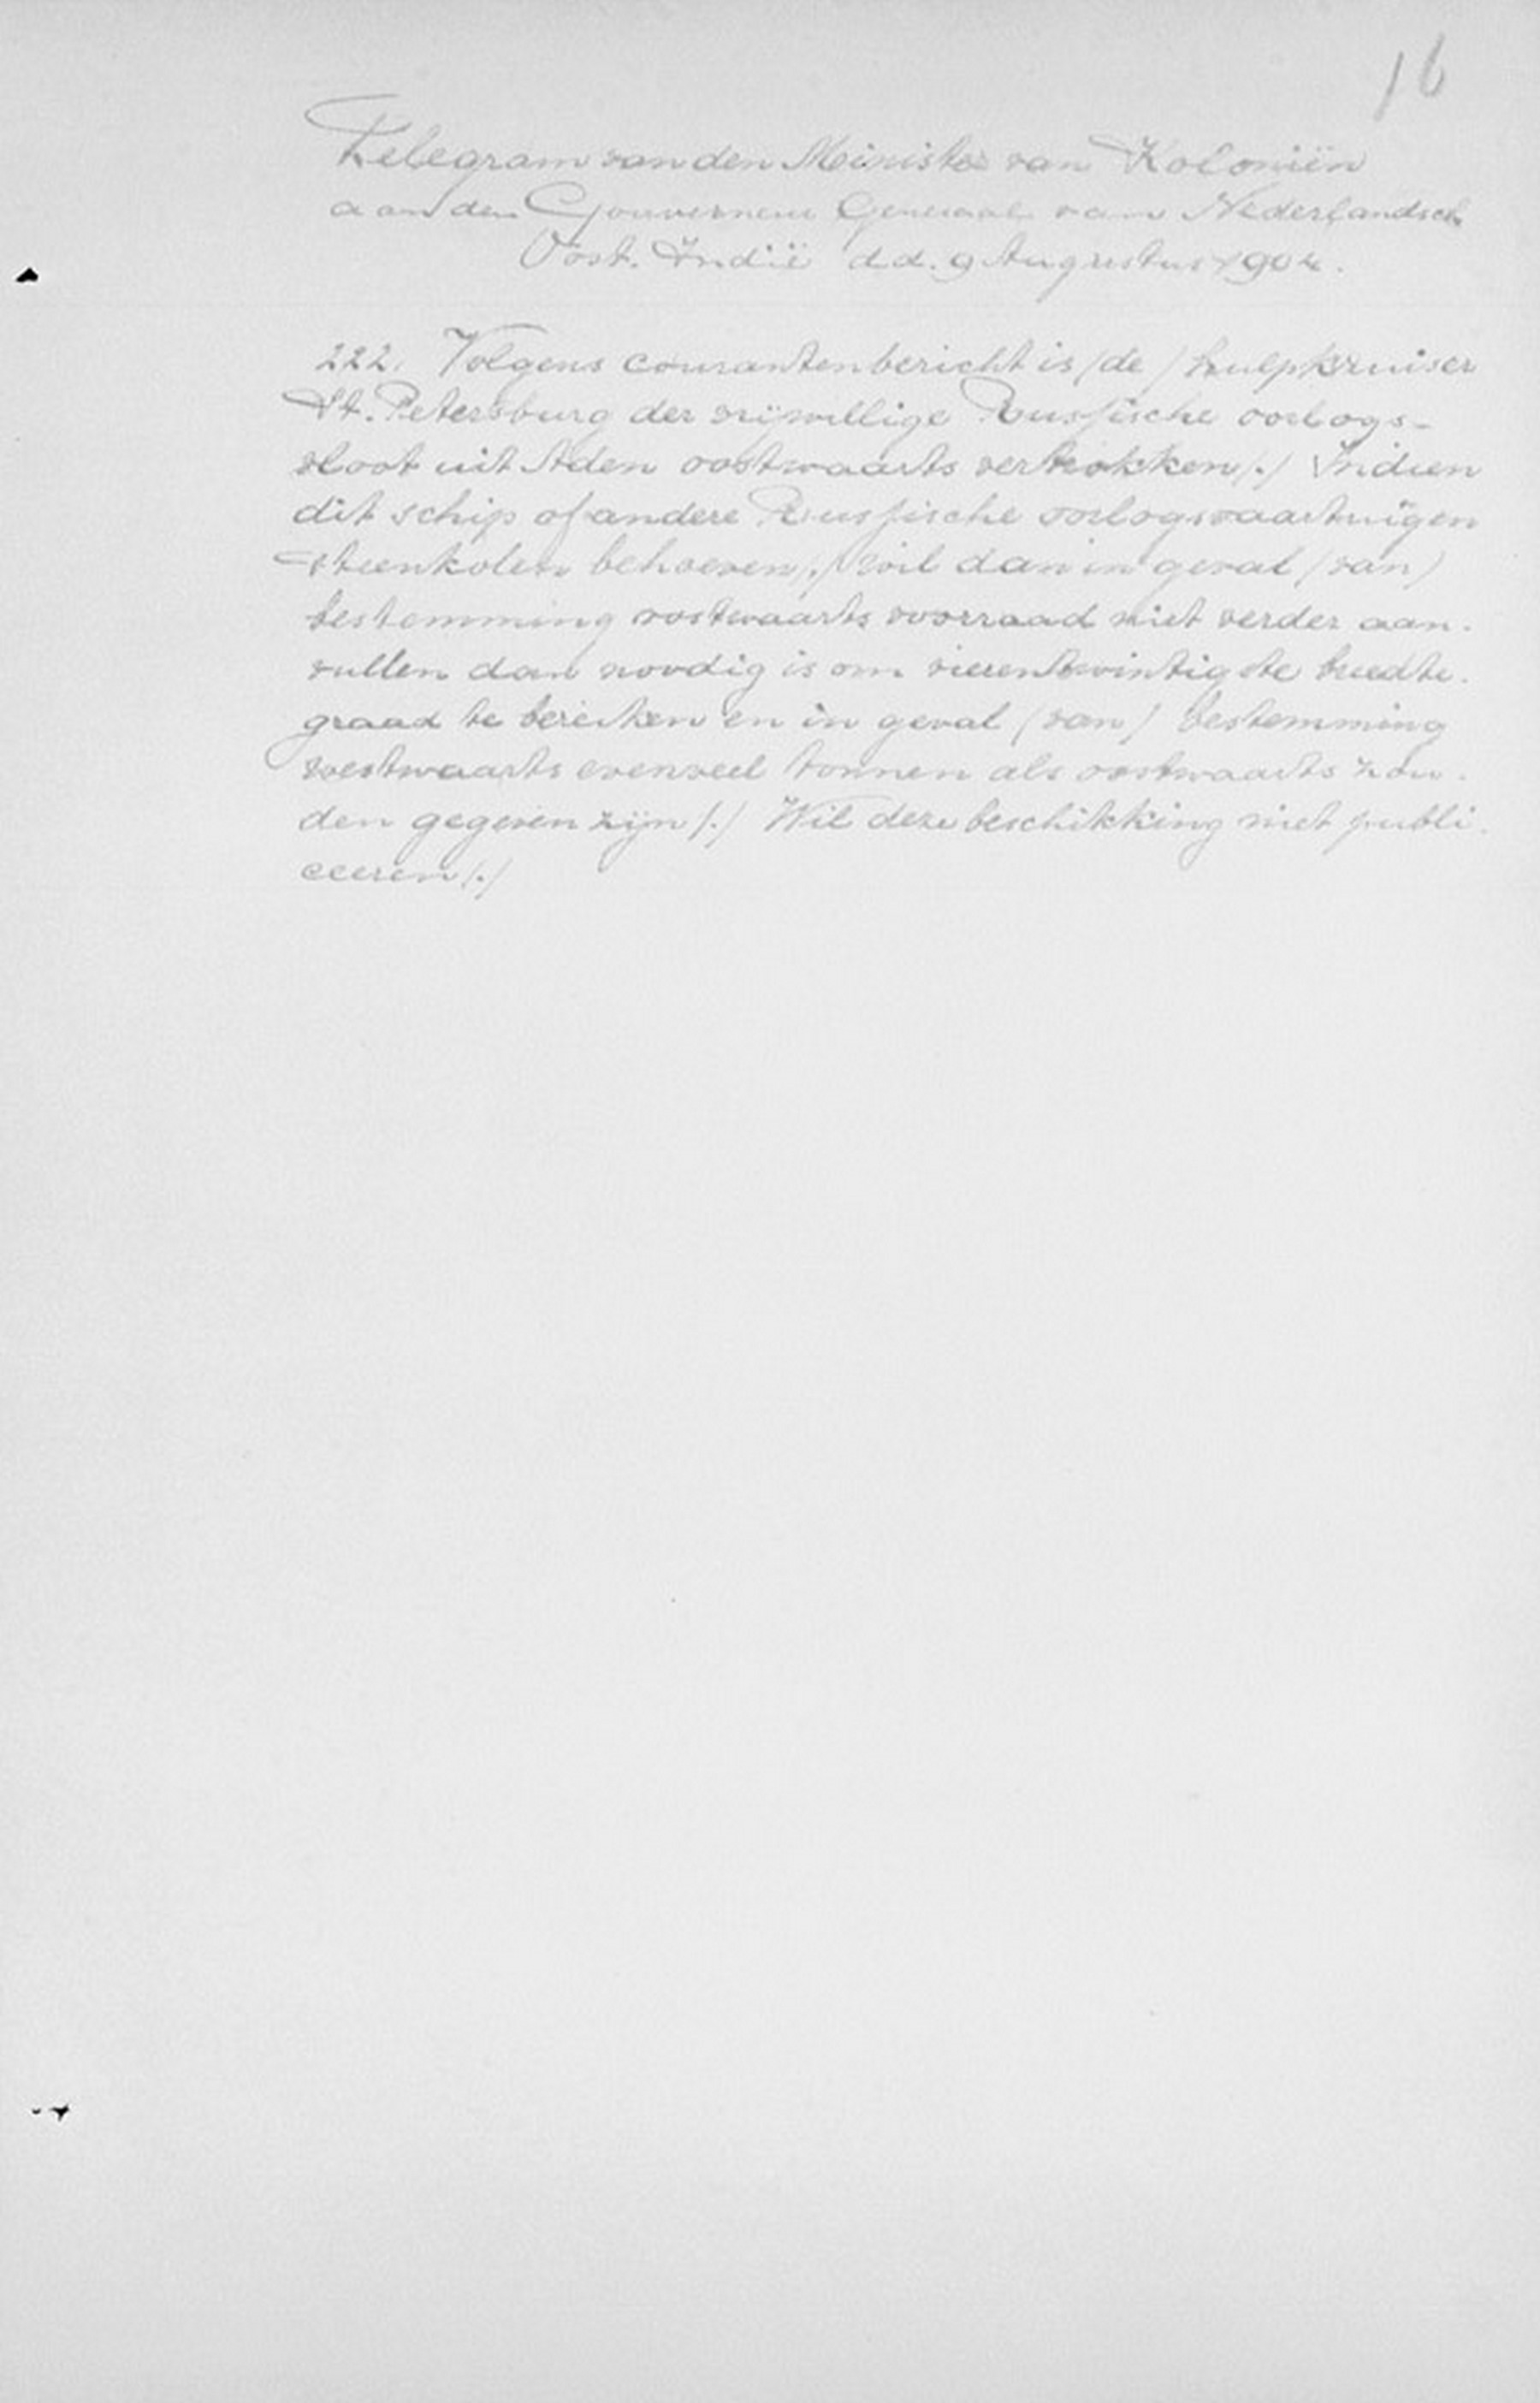 16
Telegram van den Minister van Koloniën
aan den Gouverneur Generaal van Nederlandsch
Oost. Indië d.d. 9 Augustus 1904.
222. Volgens courantenbericht is (de) hulpkruiser
St. Petersburg der vrijwillige Russische oorlogs-
vloot uit Aden oostwaarts vertrokken (.) Indien
dit schip of andere Russische oorlogsvaartuigen
steenkolen behoeven (.) wil dan in geval (van)
bestemming oostwaarts voorraad niet verder aan-
vullen dan noodig is om vierentwintigste breedte-
graad te bereiken en in geval (van) bestemming
westwaarts evenveel tonnen als oostwaarts zou-
den gegeven zijn (.) Wil deze beschikking niet publi-
ceeren (.)